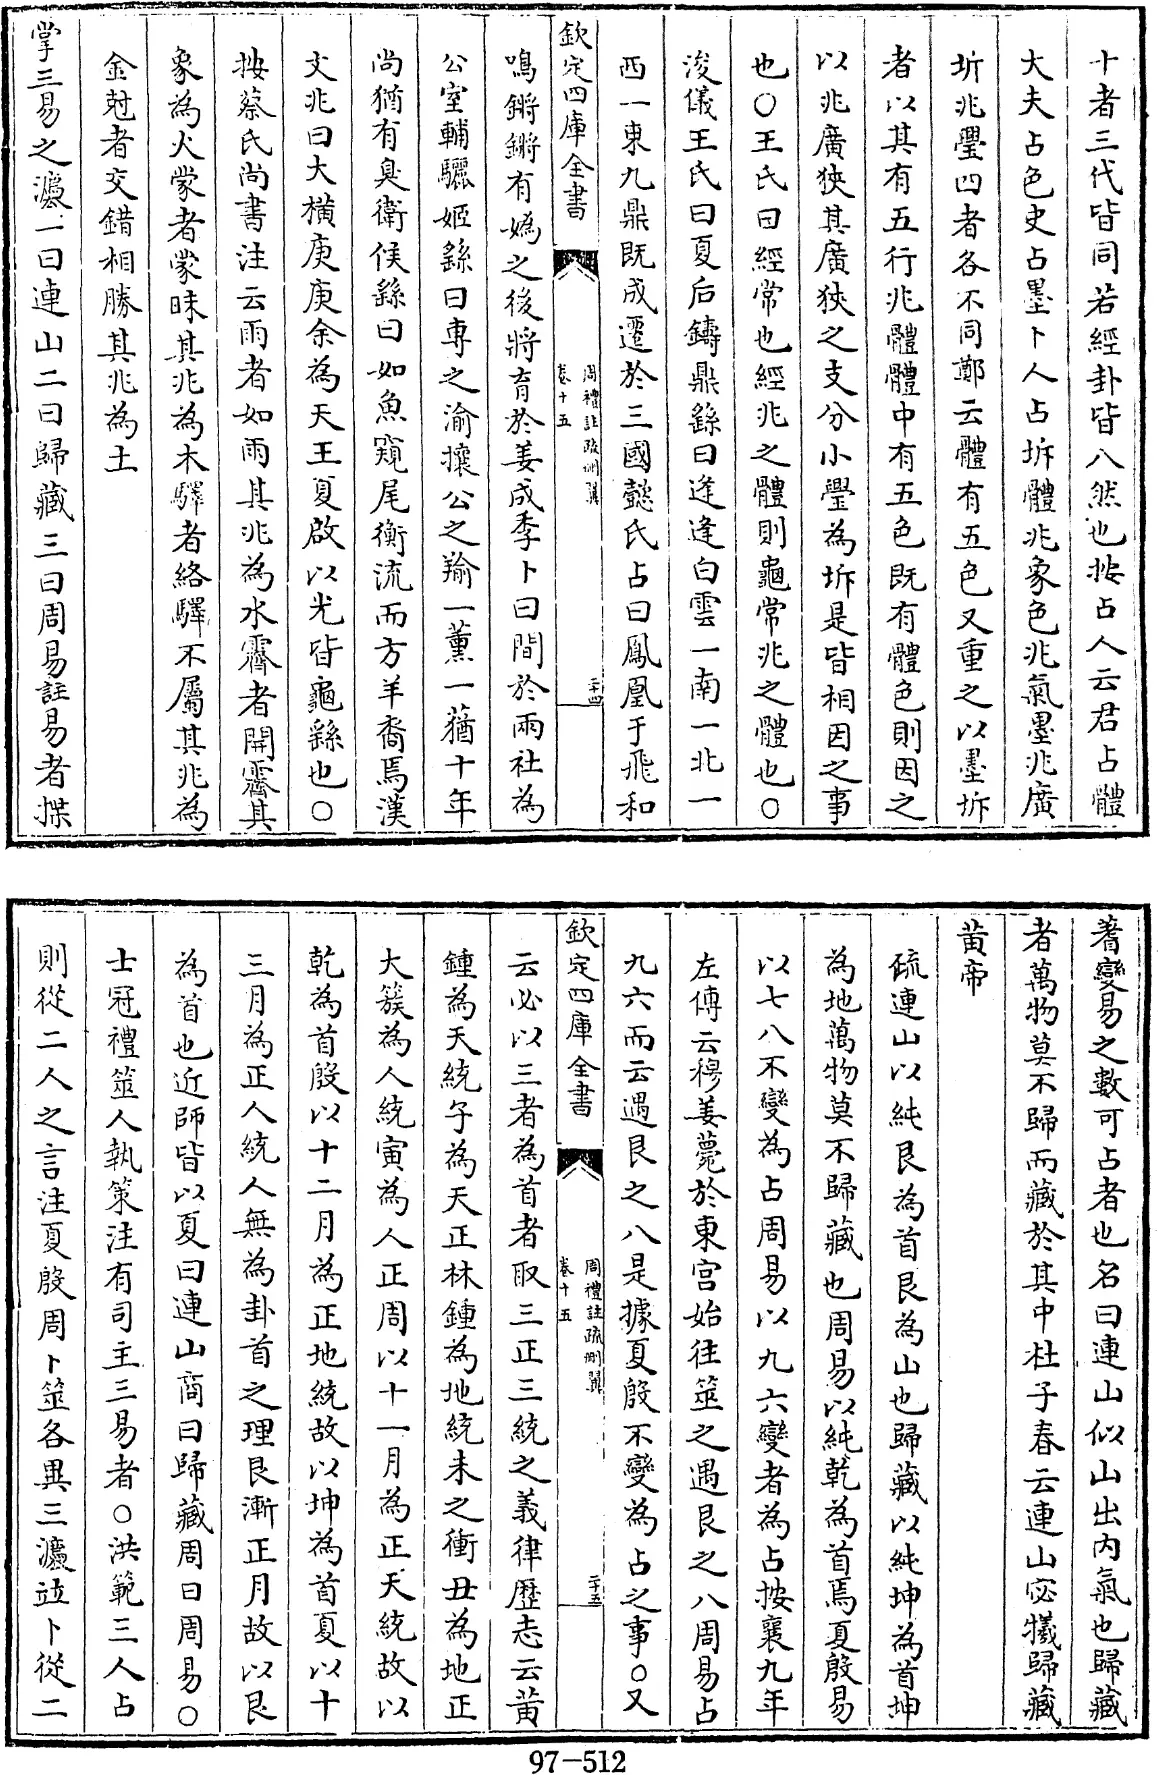 十者三代皆同若經卦皆八然也按占人云君占體
大夫占色史占墨卜人占坼體兆象色兆氣墨兆廣
坼兆舋四者各不同鄭云體有五色又重之以墨坼
者以其有五行兆體體中有五色既有體色則因之
以兆廣狹其廣狹之支分小舋為坼是皆相因之事
也○王氏曰經常也經兆之體則龜常兆之體也○
浚儀王氏曰夏后鑄鼎繇曰逢逢白雲一南一北一
西一東九鼎既成遷於三國懿氏占曰鳳凰于飛和
欽定四庫全書
周禮註疏刪翼
卷十五
二十四
鳴鏘鏘有媯之後將育於姜成季卜曰間於兩社為
公室輔驪姬繇曰専之渝攘公之羭一薰一蕕十年
尚猶有臭衛侯繇曰如魚窺尾衡流而方羊裔焉漢
文兆曰大橫庚庚余為天王夏啟以光皆龜繇也○
按蔡氏尚書注云雨者如雨其兆為水霽者開霽其
象為火蒙者蒙昧其兆為木驛者絡驛不屬其兆為
金尅者交錯相勝其兆為土
掌三易之灋一曰連山二曰歸藏三曰周易註易者揲
蓍變易之數可占者也名曰連山似山出内氣也歸藏
者萬物莫不歸而藏於其中杜子春云連山宓犧歸藏
黄帝
疏連山以純艮為首艮為山也歸藏以純坤為首坤
為地萬物莫不歸藏也周易以純乾為首焉夏殷易
以七八不變為占周易以九六變者為占按襄九年
左傳云穆姜薨於東宫始往筮之遇艮之八周易占
九六而云遇艮之八是據夏殷不變為占之事○又
欽定四庫全書
周禮註疏刪翼
卷十五
二十五
云必以三者為首者取三正三統之義律歴志云黄
鍾為天統子為天正林鍾為地統未之衝丑為地正
大簇為人統寅為人正周以十一月為正天統故以
乾為首殷以十二月為正地統故以坤為首夏以十
三月為正人統人無為卦首之理艮漸正月故以艮
為首也近師皆以夏曰連山商曰歸藏周曰周易○
士冠禮筮人執策注有司主三易者○洪範三人占
則從二人之言注夏殷周卜筮各異三灋竝卜從二
97-512